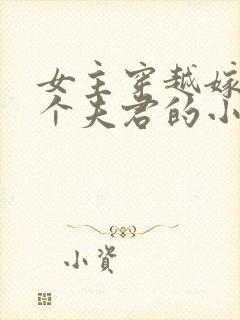 女主穿越嫁
个夫君的小
小资